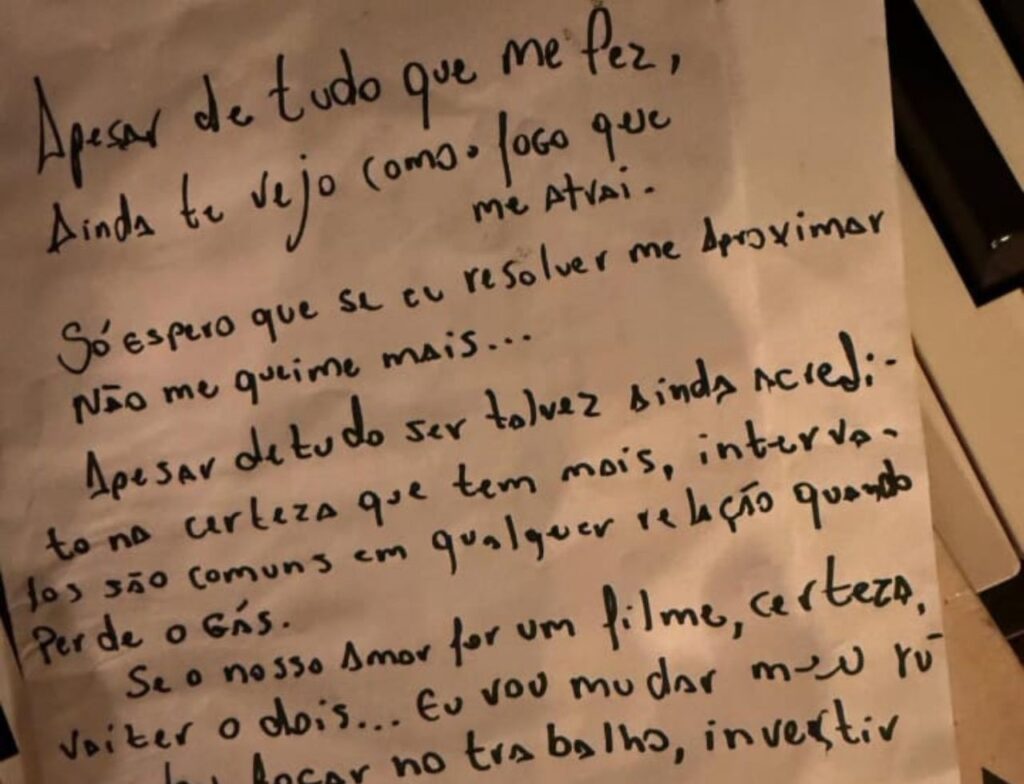 Apesar de tudo que me fez,
Ainda te vejo como fogo que
me atrai.
Só espero que se eu resolver me aproximar
Não me queime mais...
Apesar de tudo ser talvez ainda acredi-
to na certeza que tem mais, interva-
los são comuns em qualquer relação quando
Perde o Gás.
Se o nosso amor for um filme, certeza,
vai ter o dois... Eu vou mudar meu ru
focar no trabalho, investir